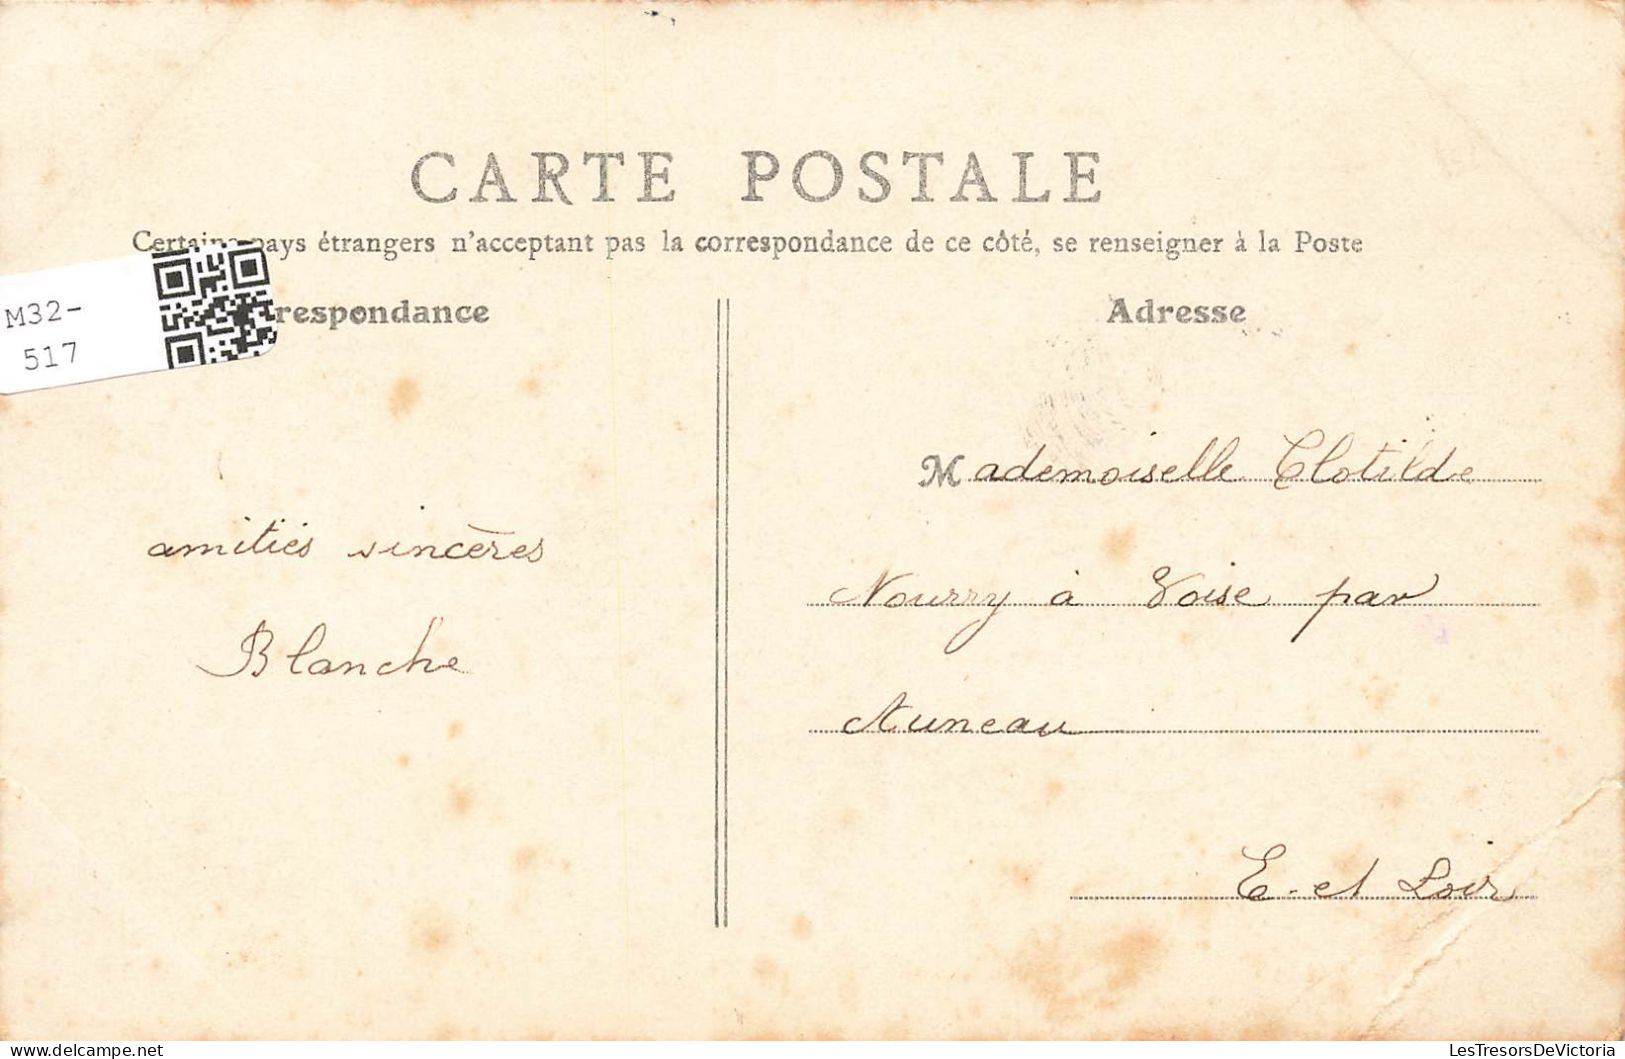 CARTE POSTALE
pays étrangers n'acceptant pas la correspondance de ce côté, se renseigner à la Poste
M32-
517
respondance
Adresse
amitiés sincères
Blanche
Mademoiselle Clotilde
Nourry à Voise par
Auneau
E. et Loir
LesTresorsDeVictoria